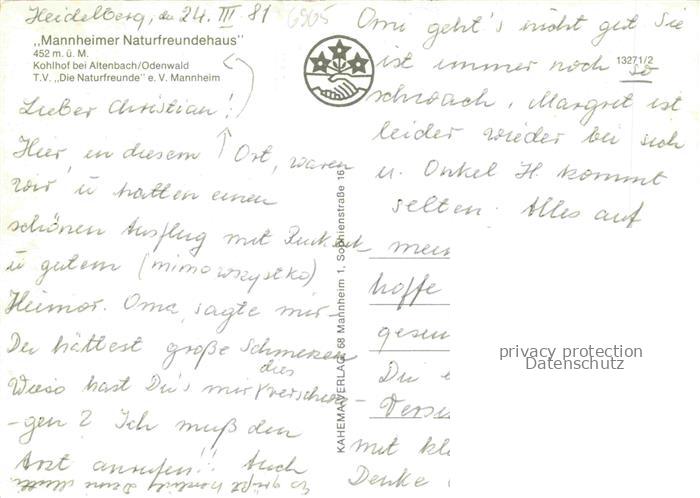 Heidelberg, den 24. III 81
6905
„Mannheimer Naturfreundehaus"
452 m. ü. M.
Kohlhof bei Altenbach/Odenwald
T.V. „Die Naturfreunde" e. V. Mannheim
Lieber Christian!
Hier, in diesem Ort, waren
wir u hatten einen
schönen Ausflug mit Rucksack
u gutem (mimo wszystko)
Humor. Oma sagte mir-
Du hättest große Schmerzen
Wieso hast Du's mir dies verschwie-
-gen? Ich muß den
Arzt anrufen!! Auch
Es grüßt herzlich Deine
KAHEMA VERLAG, 68 Mannheim 1, Sophienstraße 16
13271/2
Omi geht's nicht gut Sie
ist immer noch so
schwach, Margret ist
leider wieder bei sich
u. Onkel H. kommt
selten. Alles auf
mein
hoffe
gesun
Du
Versu
mit kl
Denke
privacy protection
Datenschutz